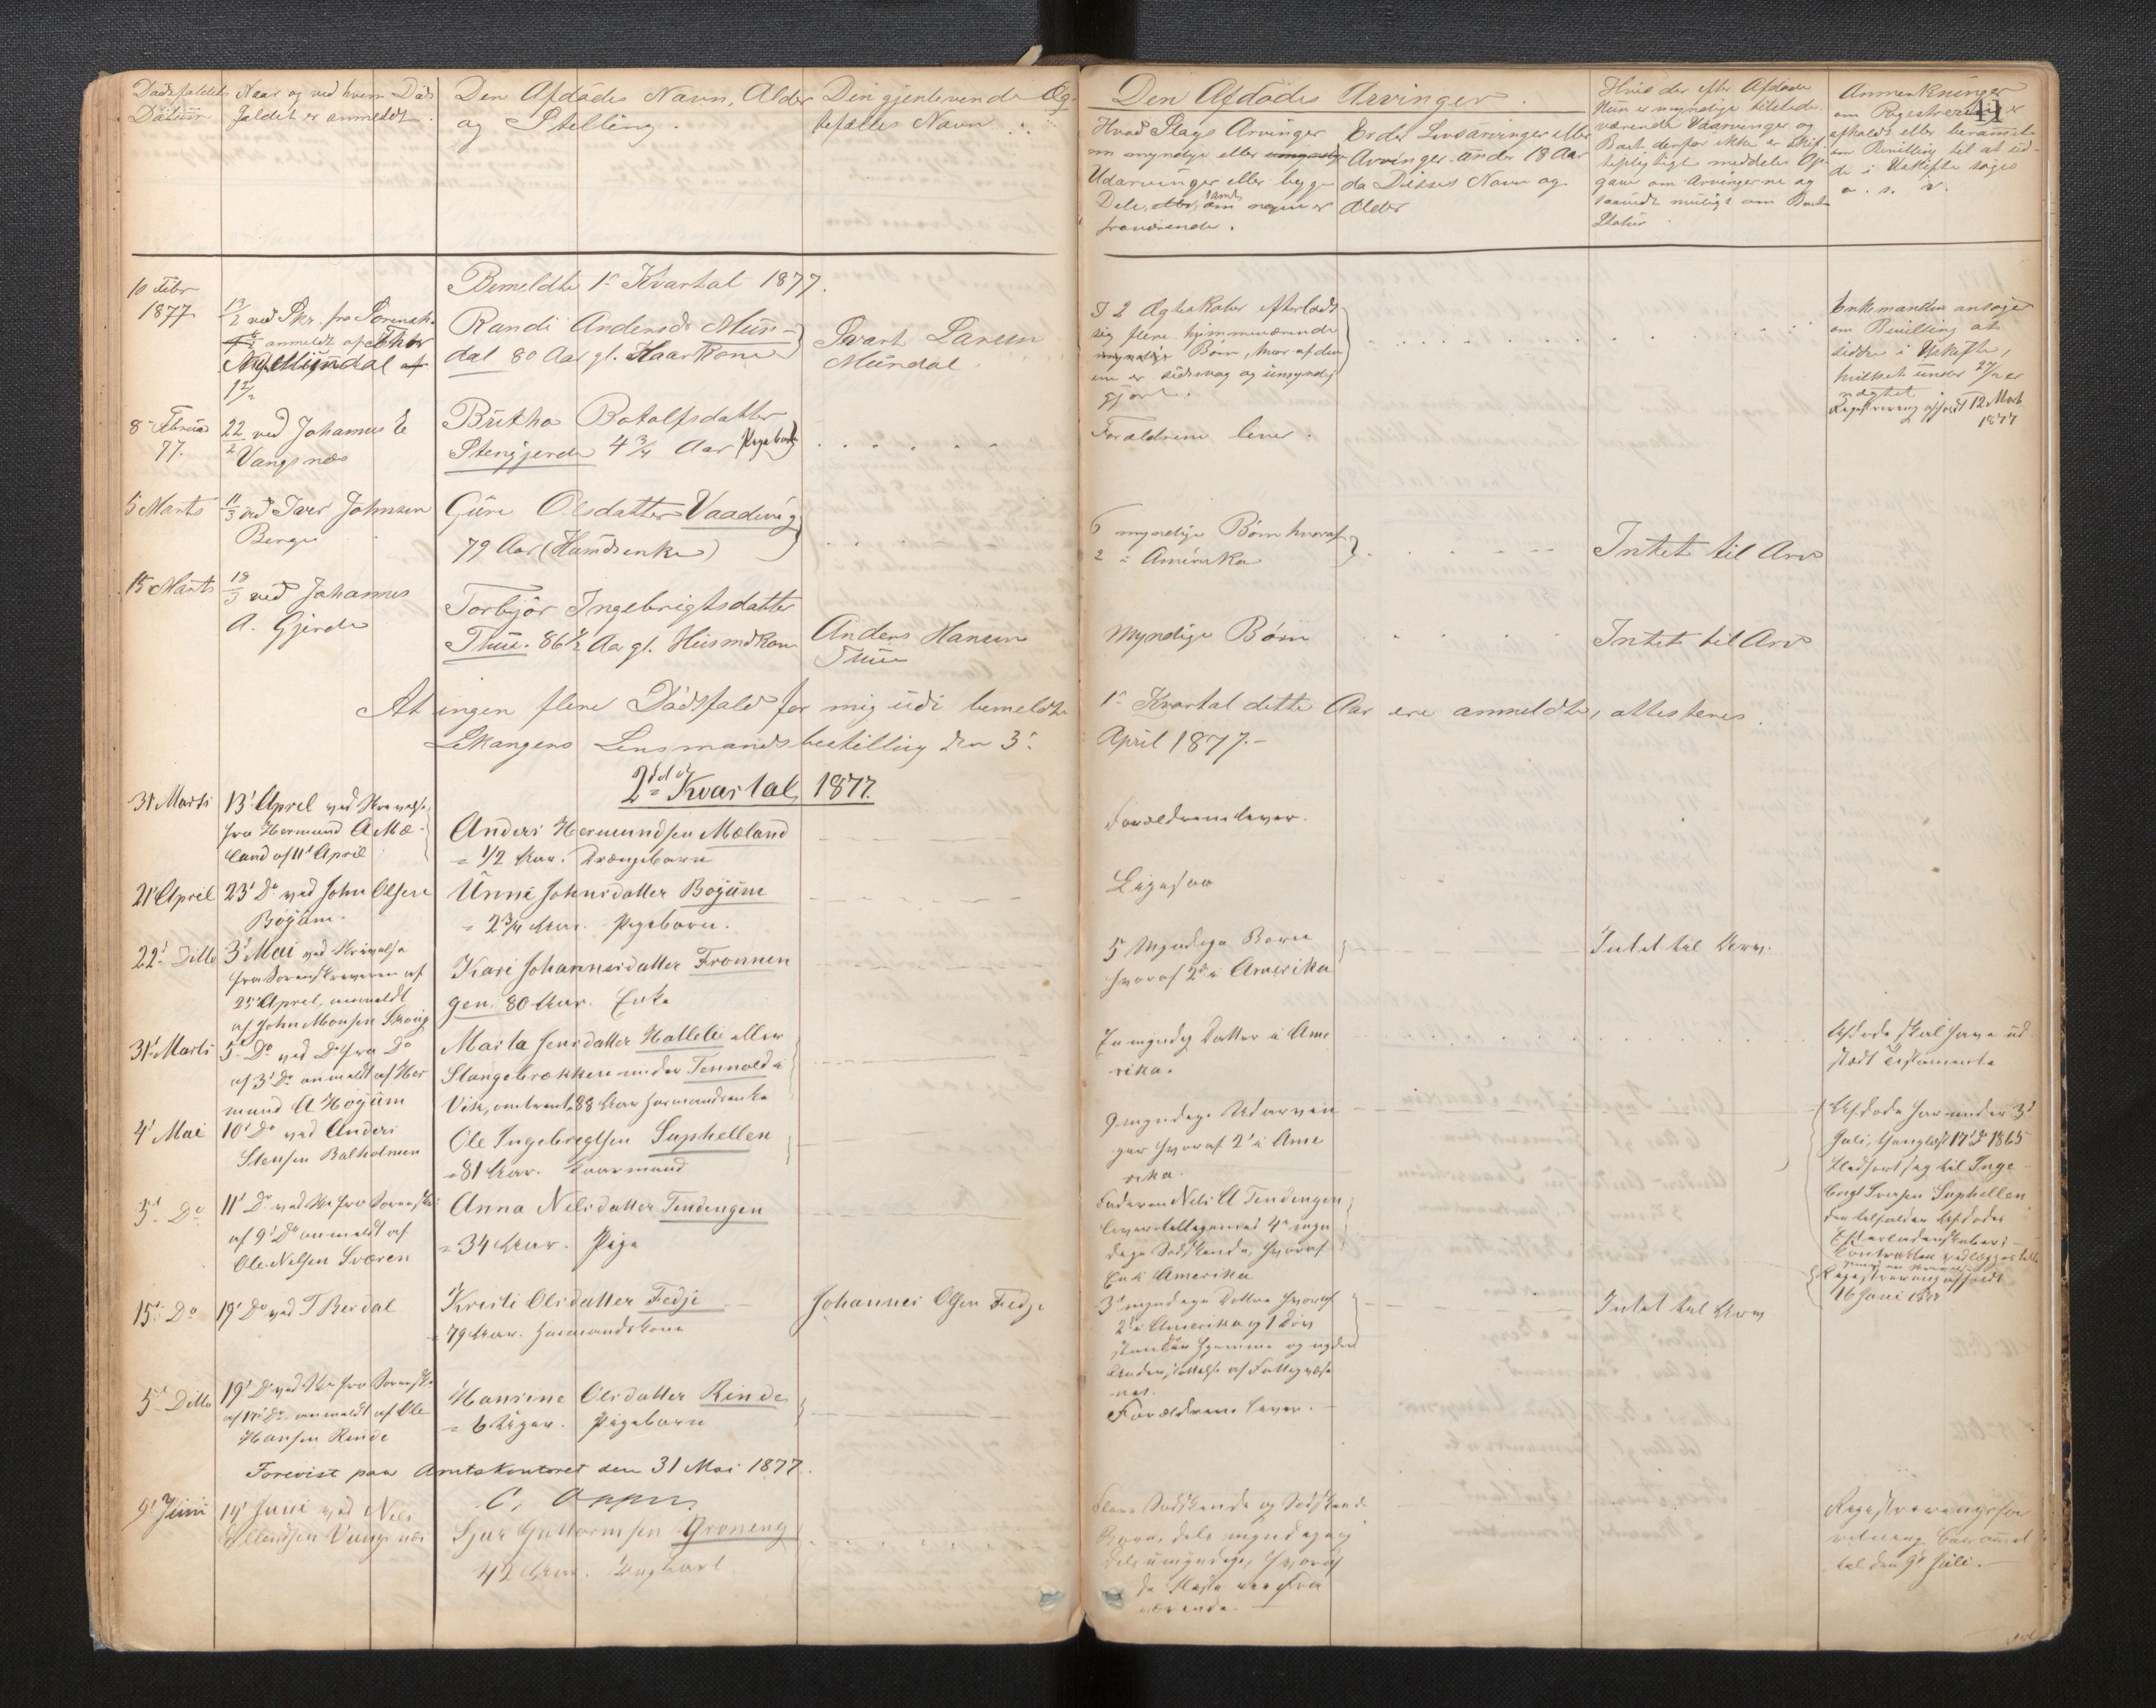 Dødsfaldets
Datum
Naar og ved hvem Døds
faldet er anmeldt.
Den Afdødes Navn, Alder
og Stilling.
Den gjenlevende Æg-
tefælles Navn
Den Afdødes Arvinger.
Hvad Slags Arvinger
om myndige eller
Udarvinger eller begge
Dele, samt om nogen er
fraværende.
Er der Livsarvinger eller
Arvinger under 18 Aar
da Disses Navn og
Alder
Hvis der efter Afdøde
kun er myndige tilstede-
værende Udarvinger og
Boet derfor ikke er skif-
tepligtigt meddeles Op-
gave om Arvingerne og
saavidt muligt om Boets
Status
Anmerkninger
om Registrering er
afholdt eller berammet
om Bevilling til at sid-
de i Uskifte søges
o. s. v.
41
Bemeldte 1ste Kvartal 1877.
10 Febr
1877
13/2 ved Skr. fra Sorensk.
anmeldt af Thor
Mundal
Randi Andersdr Mun-
dal 80 Aar gl. Kaarkone
Ivart Larsen
Mundal
I 2 Ægteskaber efterladt
sig flere hjemmeværende
Børn, hvoraf den
ene er sindssvag og umyndig
gjort.
Enkemanden ansøger
om Bevilling at
sidde i Uskifte,
hvilket under 27/2 er
nægtet
Registrering afholdt 12 Marts
1877
8 Februar
77.
22/2 ved Johannes E
Vangsnes
Britha Botolfsdatter
Stengjerde 4 3/4 Aar Pigebarn
Forældrene lever.
5 Marts
11/3 ved Iver Johnsen
Berge
Guri Olsdatter Vaadvig
79 Aar (Husmdsenke)
6 myndige Børn hvoraf
2 i Amerika
Intet til Arv
15 Marts
18/3 ved Johannes
A. Gjerde
Torbjør Ingebrigtsdatter
Thue. 86 1/2 Aar gl. Husmdkone
Anders Hansen
Thue
Myndige Børn
Intet til Arv
At ingen flere Dødsfald for mig udi bemeldte 1ste Kvartal dette Aar ere anmeldte, attesteres.
Lekangers Lensmandsbestilling den 3. April 1877.-
2det Kvartal 1877.
31 Marts
13 April ved Skrivelse
fra Hermund A Mæ-
land af 11 April
Anders Hermundsen Mæland
= 1/2 Aar. Drengebarn
Forældrene lever.
21 April
23 Do ved John Olsen
Bøyum.
Unni Johnsdatter Bøyum
= 2 3/4 Aar. Pigebarn.
Ligesaa
22. Ditto
3 Mai ved Skrivelse
fra Sorenskriveren af
25 April, anmeldt
af John Monsen
Kari Johannesdatter Fronnin
gen. 80 Aar. Enke
5 Myndige Børn
hvoraf 2 i Amerika
Intet til Arv.
31. Marts
5. Do ved Do fra Do
af 3 Do anmeldt af Her
mund A Høyum
Marta Jensdatter Hallelie eller
Stangebrækken under Tennold i
Vik, omtrent 88 Aar Husmandsenke
En myndig Datter i Ame
rika.
Afdøde skal have ud
stedt Testamente
4 Mai
10 Do ved Anders
Stensen Balholmen
Ole Ingebrigtsen Suphellen
= 81 Aar. Kaarmand
9 myndige Udarvin
ger hvoraf 2 i Ame
rika.
Afdøde har under 3
Juli, thinglæst 17 Do 1865
til Inge
brigt Iversen Suphellen
den tilfalder Afdødes
Efterladenskaber;
Kontrakten vedlægges
Registrering afholdt
16 Juni 1877
5 Do
11 Do ved Skr fra Sorenskr.
af 9 Do anmeldt af
Ole Nilsen Sværen
Anna Nilsdatter Tendengen
= 34 Aar. Pige
Faderen Nils A Tendengen
lever tilligemed 4 myn
dige Sødskende, hvoraf
En i Amerika
15. Do
19 Do ved T Berdal
Kristi Olsdatter Fedje
79 Aar. Husmandskone
Johannes Olsen Fedje
3 myndige Døttre hvoraf
2 i Amerika og 1 Døv
stum er hjemme og nyder
Understøttelse af Fattigvæse
net.
Intet til Arv
5 Ditto
19 Do ved Skr fra Sorenskr
af 17 Do anmeldt af Ole
Hansen Rinde
Hansine Olsdatter Rinde
= 6 Uger. Pigebarn
Forældrene lever.
Forevist paa Amtskontoret den 31 Mai 1877.
9 Juni
14 Juni ved Nils
Ellendsen Vangsnes
Sjur Guttormsen Grøneng
42 Aar. Ungkarl.
Flere Sødskende og Sødskende
Børn, dels myndige og
dels umyndige, hvoraf
de fleste ere fra
værende.
Registreringsfor
retning berammet
til den 9 Juli.